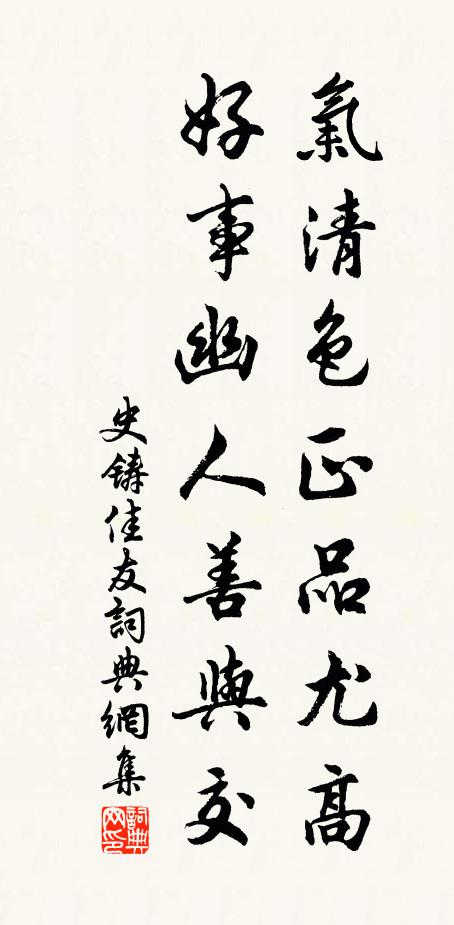 氣清色正品尤高
好事幽人善與交
史鑄佳友詞典網集
詞典
网印